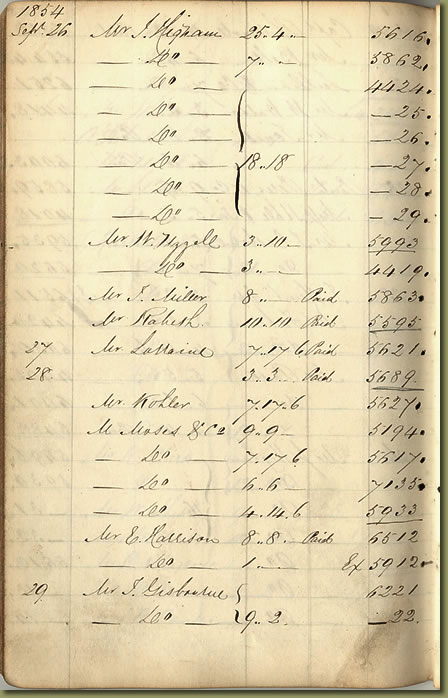 1854
Sept. 26 Mr J. Higham 25.4.. 5616.
— Do — 7.. .. 5862.
— Do — 4424.
— Do — — 25.
— Do — — 26.
— Do — 18..18 — 27.
— Do — — 28.
— Do — — 29.
Mr. W. Uzzell 3..10 — 5993
— Do — 3.. — 4419.
Mr. J. Miller 8.. Paid 5863.
Mr. 10.10 Paid 5595
27 Mr Lorraine 7..17 6 Paid 5621.
28. 3..3.. Paid 5689.
Mr. Kohler 7.17.6 5627.
M Moses & Co 9..9 — 5194.
— Do — 7.17.6 5617.
— Do — 6..6 — 7135.
— Do — 4.14.6 5933
Mr E. Harrison 8..8.. Paid 6512
— Do — 1.. .. Ex 5912
29 Mr J. Gisbourne 6221
— Do — 9..2.. — 22.